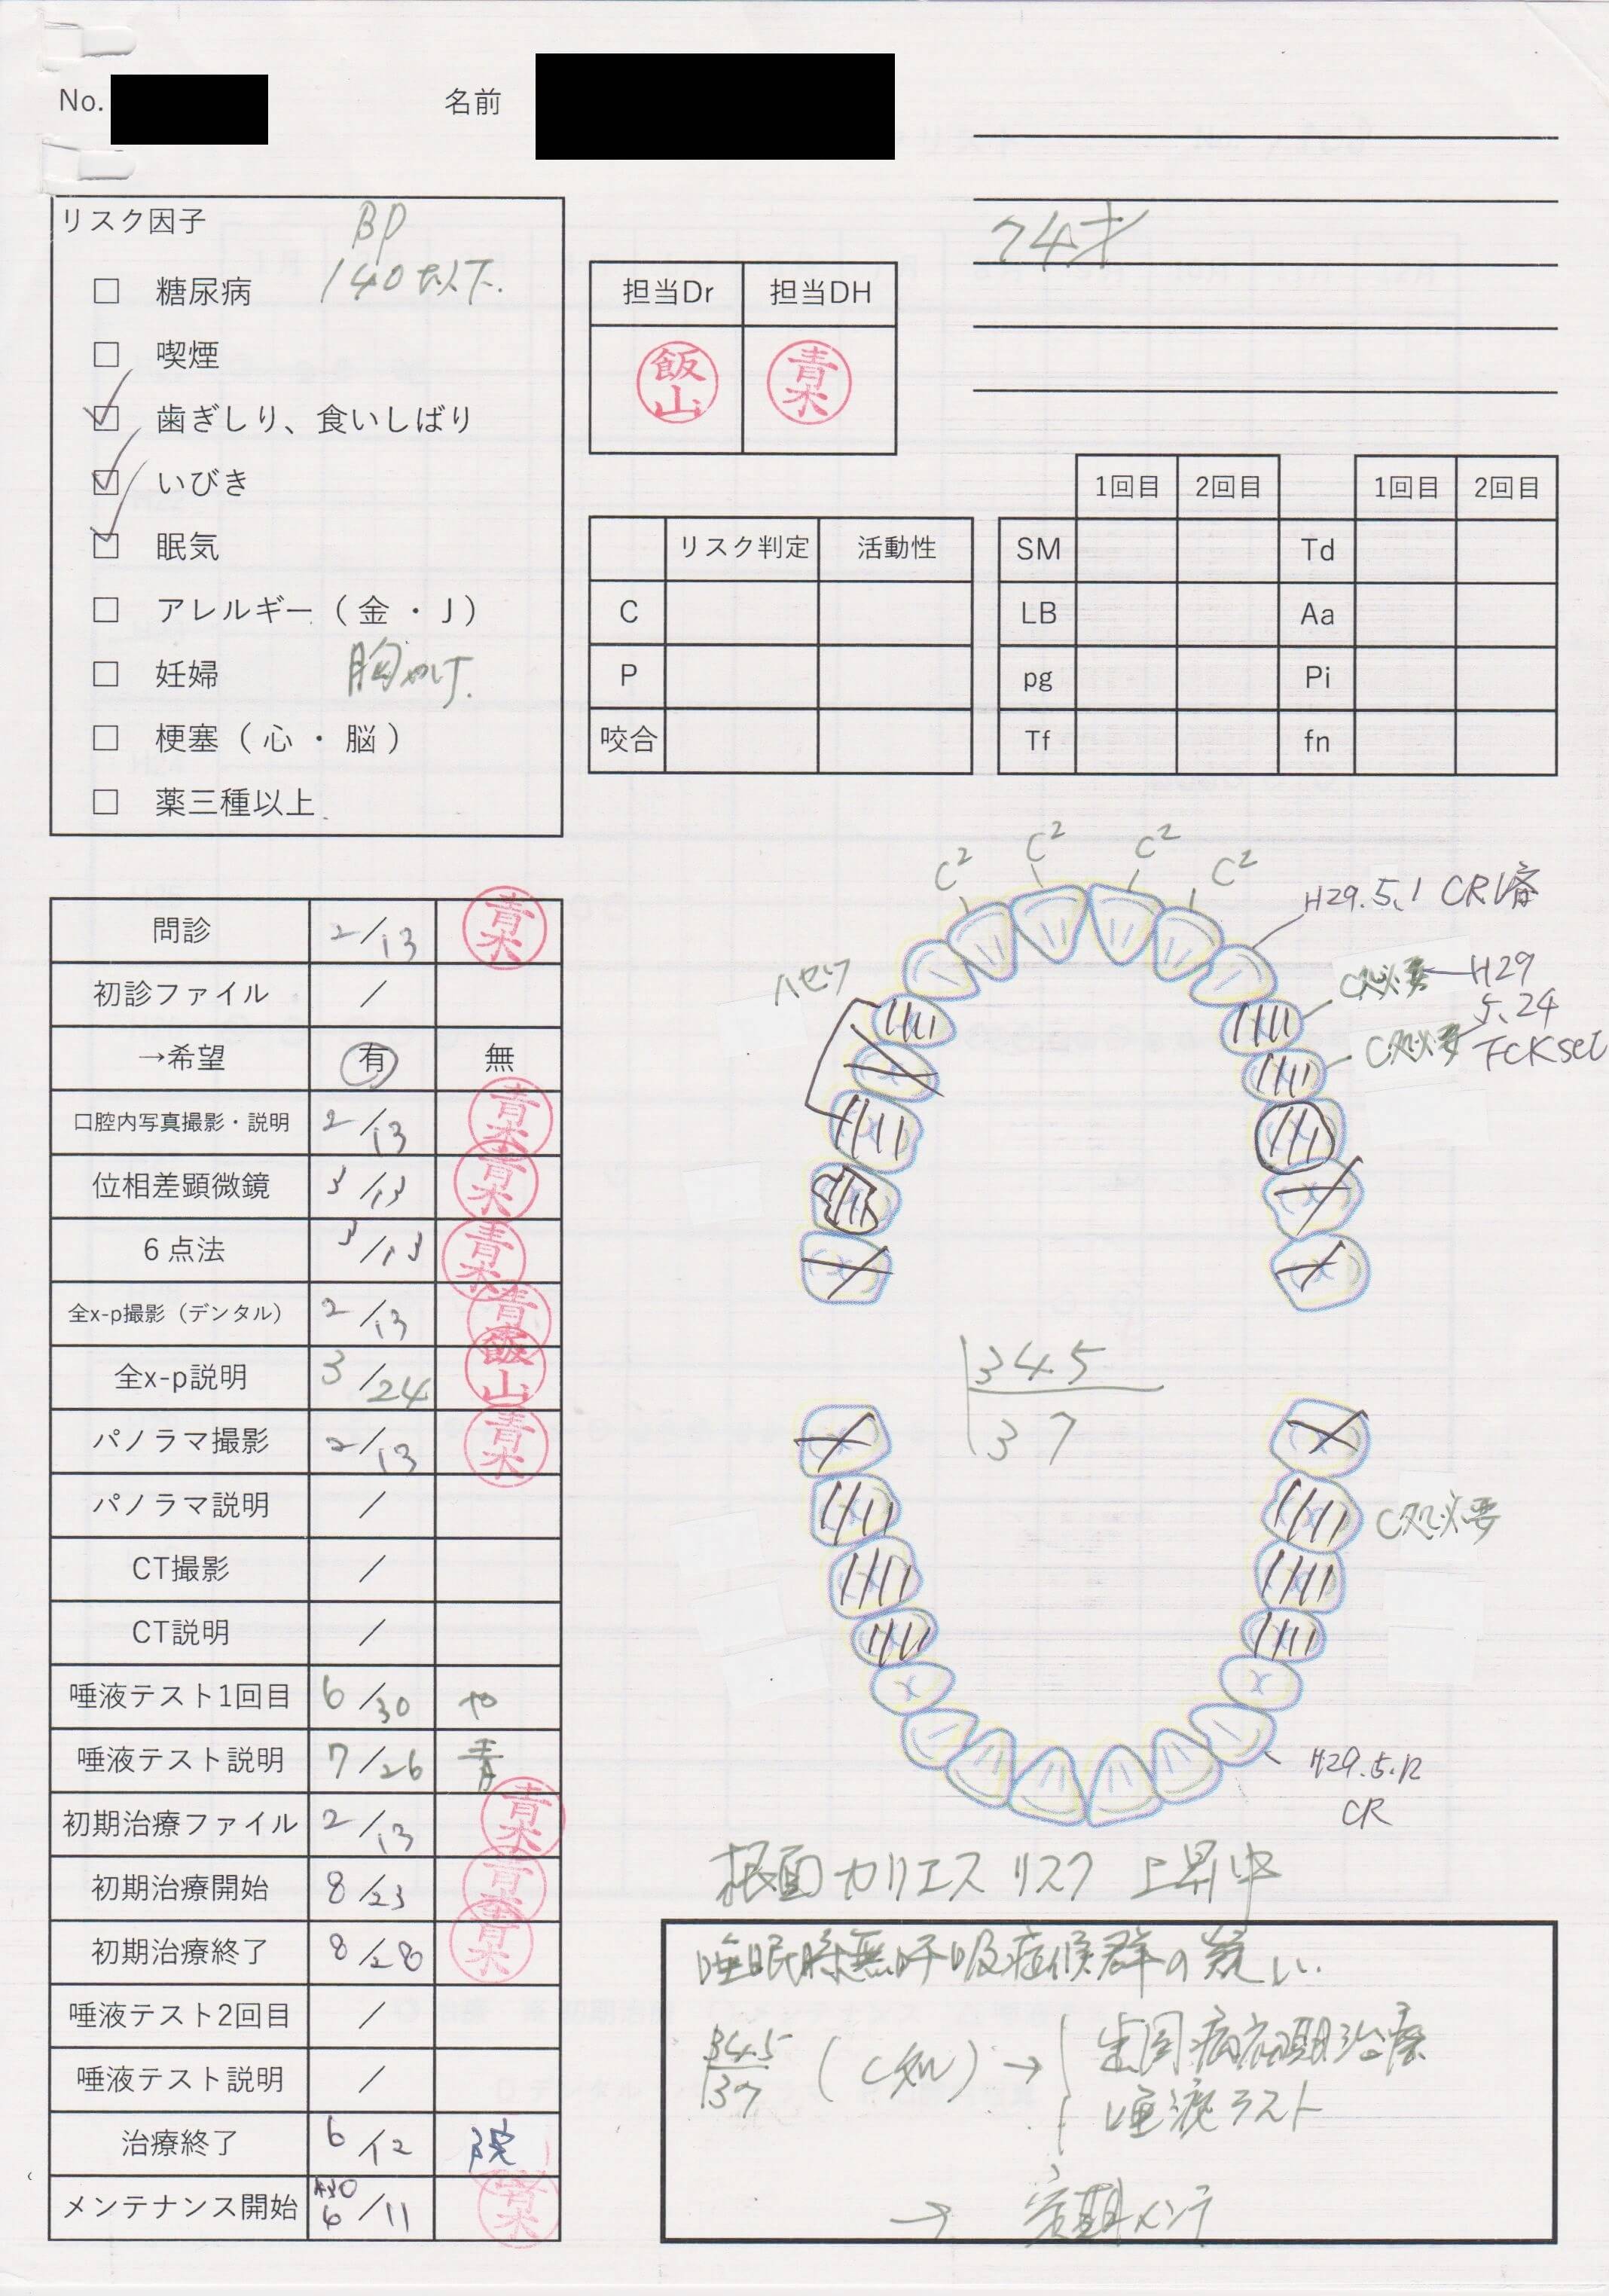 No.
名前
リスク因子
BP
140以下.
□ 糖尿病
□ 喫煙
☑ 歯ぎしり、食いしばり
☑ いびき
☑ 眠気
□ アレルギー（金・J）
□ 妊婦
胸やけ.
□ 梗塞（心・脳）
□ 薬三種以上
74才
担当Dr 担当DH
飯山 青木
リスク判定 活動性
C
P
咬合
1回目 2回目 1回目 2回目
SM Td
LB Aa
pg Pi
Tf fn
問診 2/13 青木
初診ファイル /
→希望 有 無
口腔内写真撮影・説明 2/13 青木
位相差顕微鏡 3/13 青木
6点法 3/13 青木
全x-p撮影（デンタル） 2/13 青木
全x-p説明 3/24 飯山
パノラマ撮影 2/13 青木
パノラマ説明 /
CT撮影 /
CT説明 /
唾液テスト1回目 6/30 や
唾液テスト説明 7/26 青
初期治療ファイル 2/13 青木
初期治療開始 8/23 青木
初期治療終了 8/28 青木
唾液テスト2回目 /
唾液テスト説明 /
治療終了 6/12 院
メンテナンス開始 H30 6/11 青木
C2 C2 C2 C2
H29.5.1 CR
ハセツ
C処必要 ← H29
5.24
C処必要 FCKset
345
37
C処必要
H29.5.12
CR
根面カリエスリスク 上昇中
睡眠時無呼吸症候群の疑い.
345
37
(C処) → 歯周病初期治療
唾液テスト
→ 定期メンテ